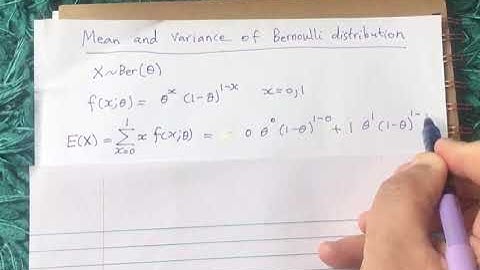 Mean and variance of Bernoulli distribution
X~Ber(θ)
f(x;θ) = θ^x (1-θ)^{1-x} x=0,1
E(X) = ∑_{x=0}^{1} x f(x;θ) = 0 θ^0 (1-θ)^{1-0} + 1 θ^1 (1-θ)^{1-